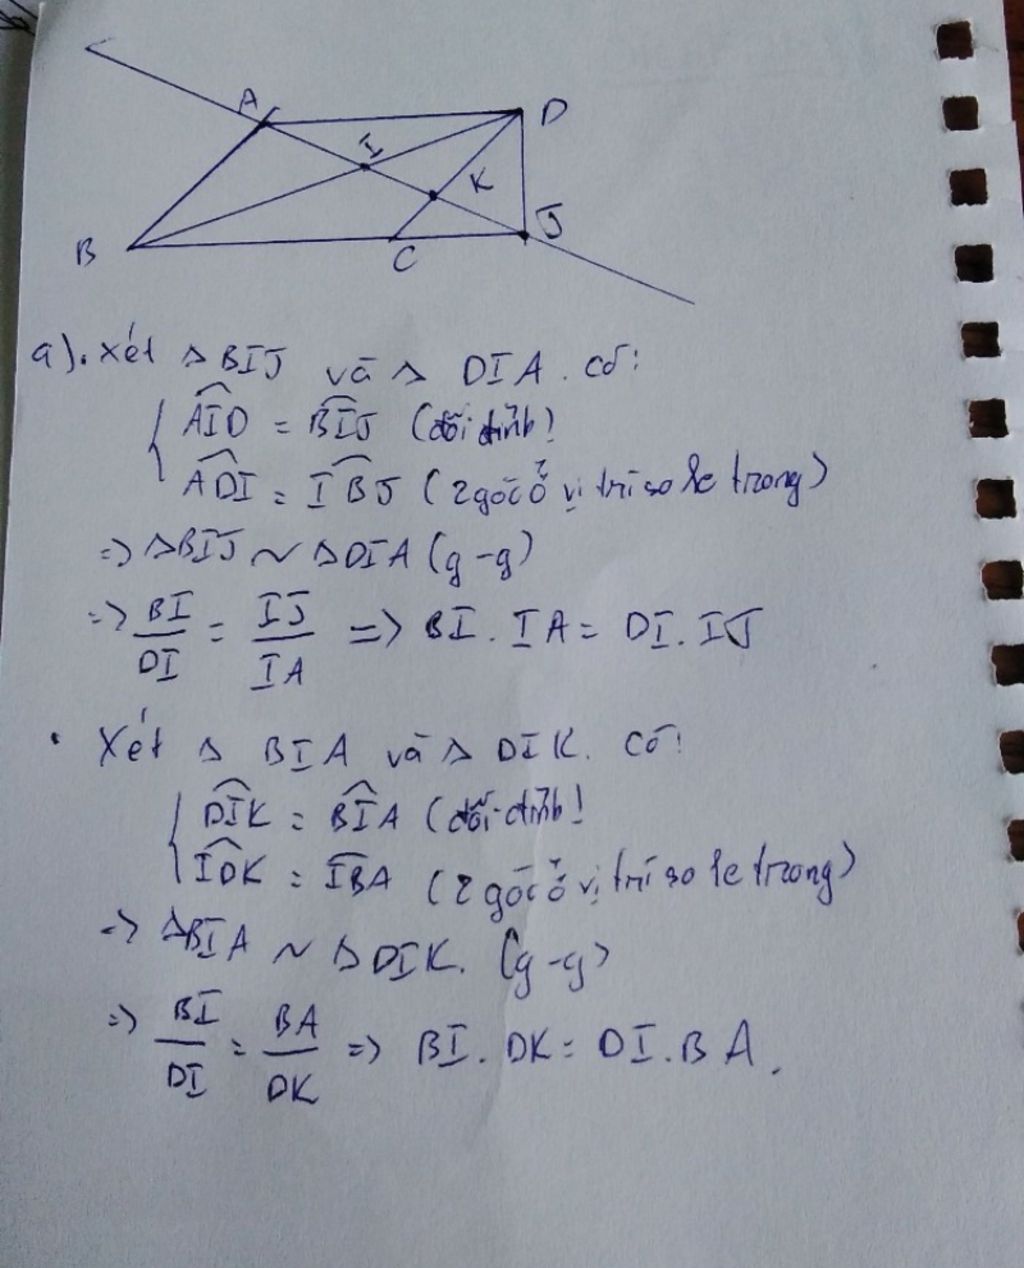 A
D
I
K
J
B
C
a). Xét Δ BIJ và Δ DIA. có:
AID = BIJ (đối đỉnh)
ADI = IBJ (2 góc ở vị trí so le trong)
=> ΔBIJ ~ ΔDIA (g-g)
=> BI/DI = IJ/IA => BI. IA = DI. IJ
• Xét Δ BIA và Δ DIK. có:
DIK = BIA (đối đỉnh)
IDK = IBA (2 góc ở vị trí so le trong)
=> ΔBIA ~ ΔDIK. (g-g)
=> BI/DI = BA/DK => BI. DK = DI. BA.